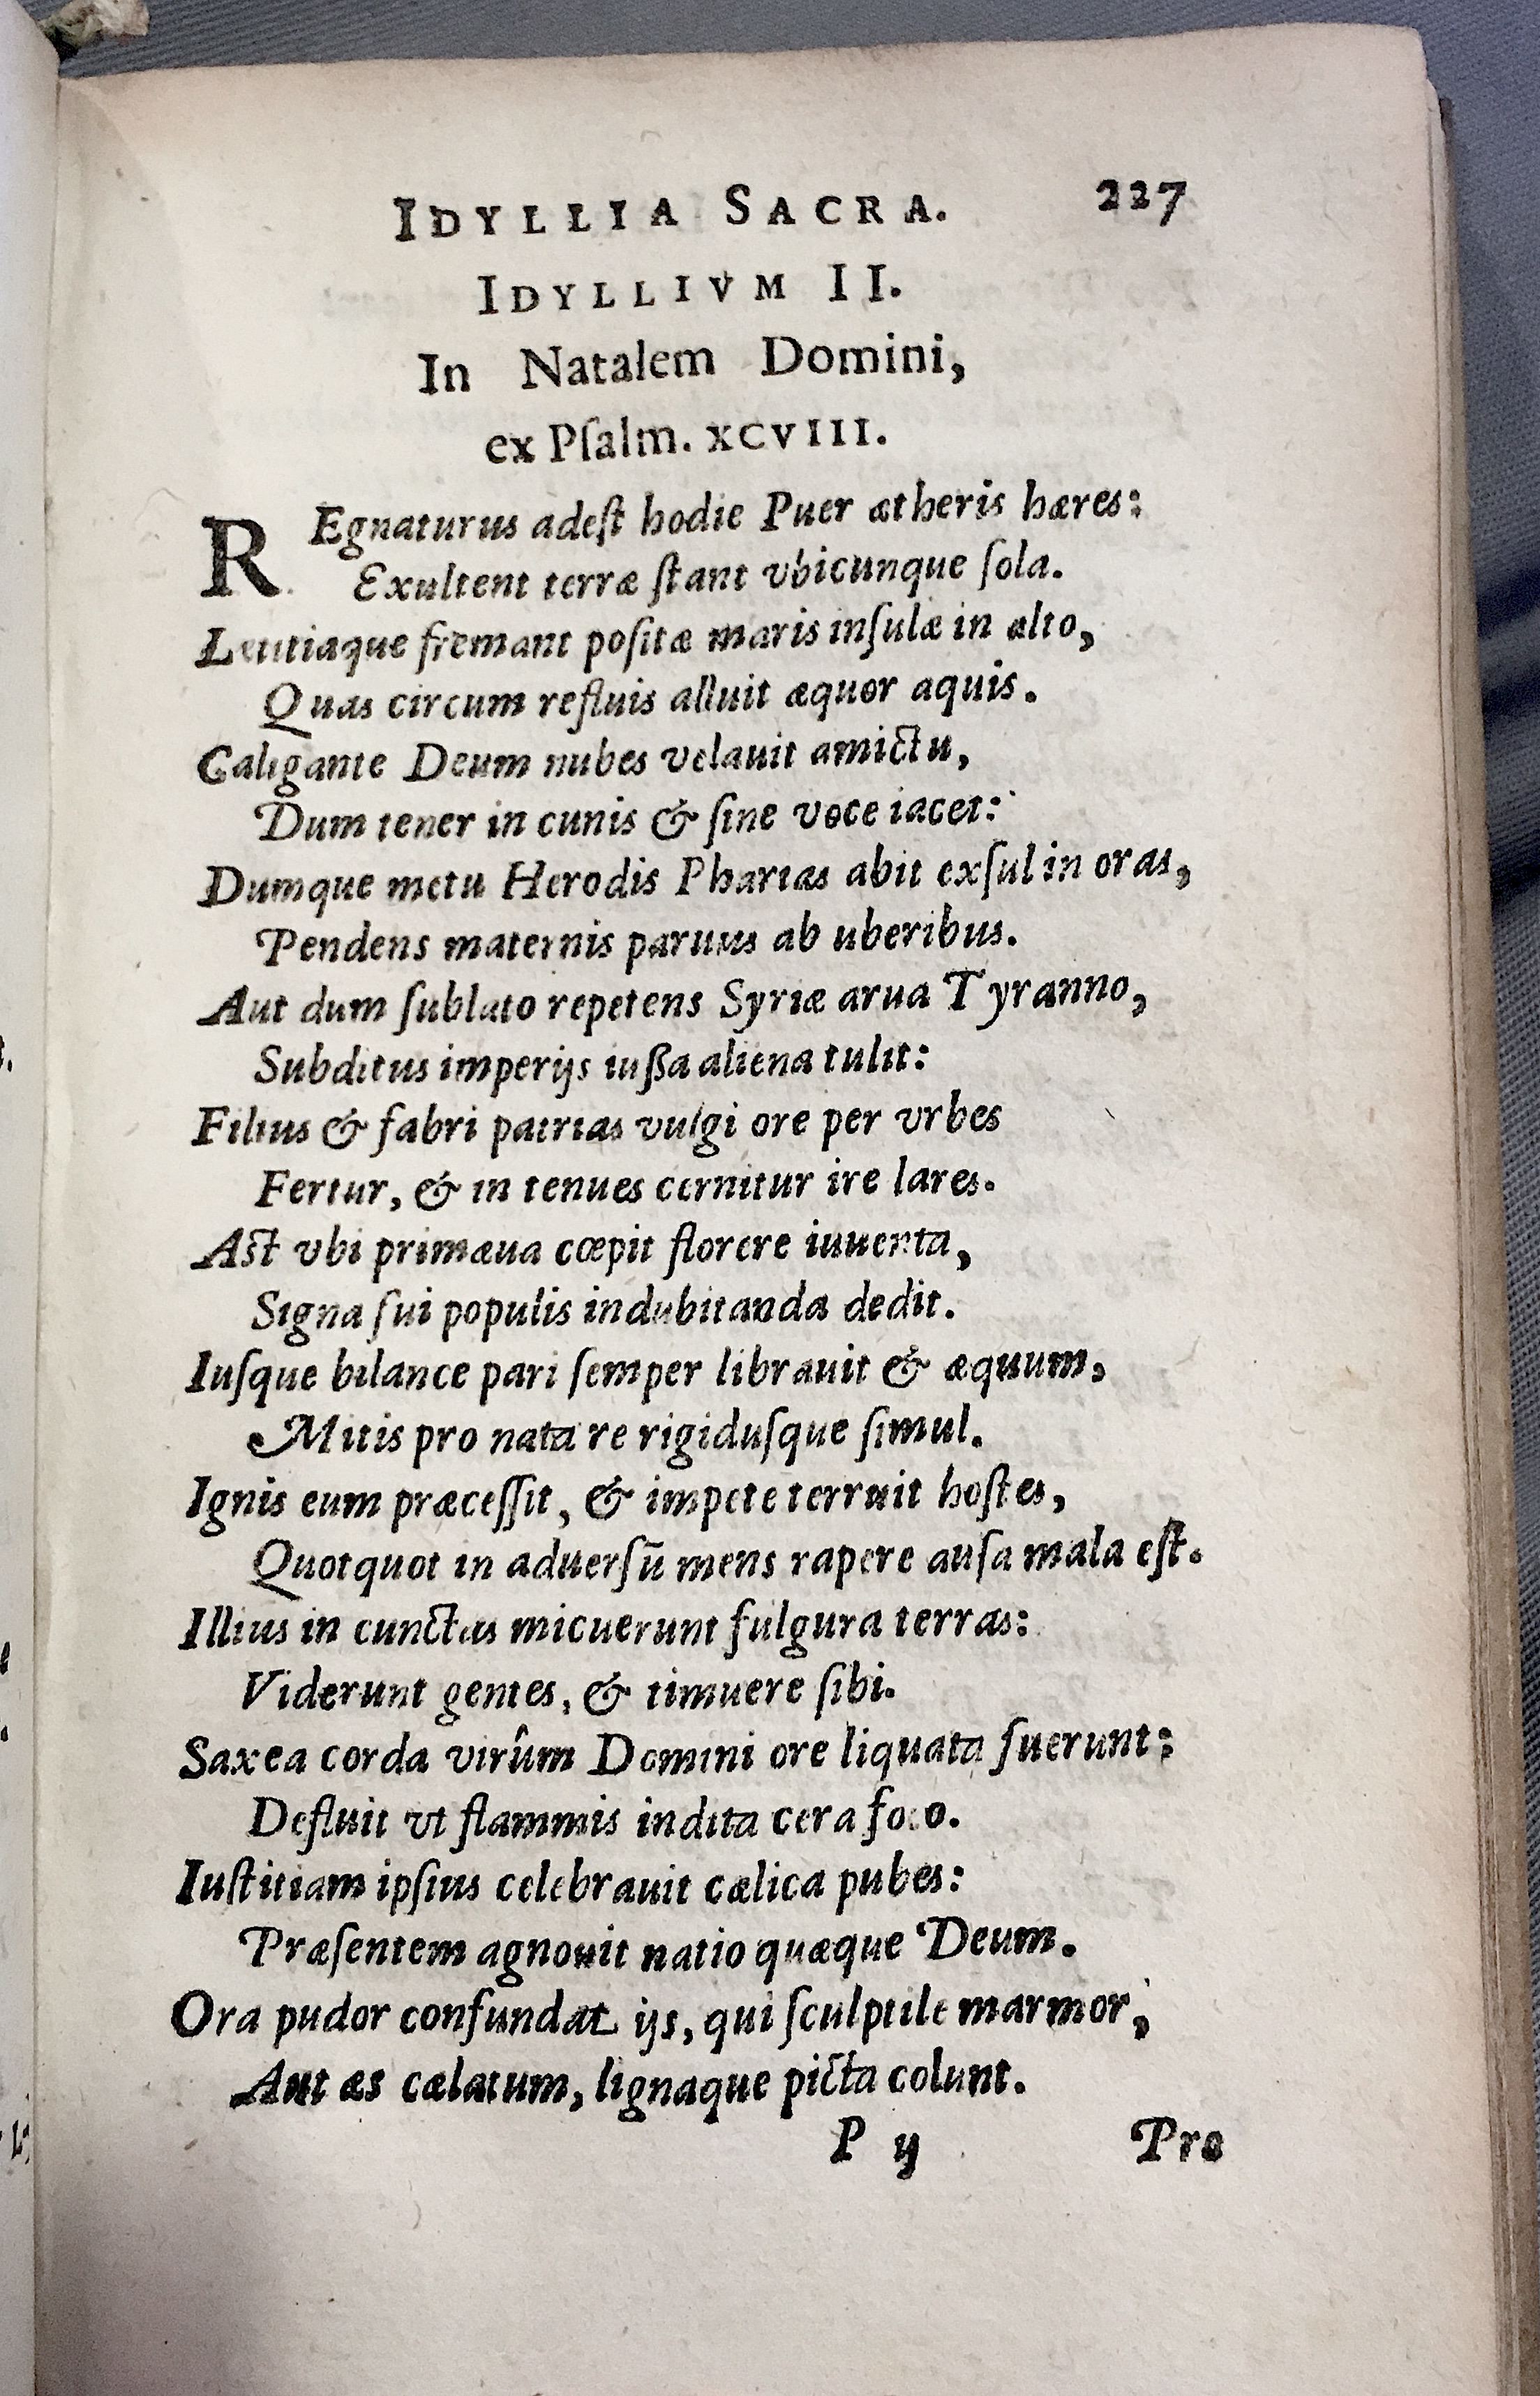 IDYLLIA SACRA. 227
IDYLLIVM II.
In Natalem Domini,
ex Pſalm. XCVIII.
REgnaturus adeſt hodie Puer ætheris hæres:
Exultent terræ ſtant vbicunque ſola.
Letitiaque fremant poſitæ maris inſulæ in alto,
Quas circum refluis alluit æquor aquis.
Caligante Deum nubes velauit amictu,
Dum tener in cunis & ſine voce iacet:
Dumque metu Herodis Pharias abit exſul in oras,
Pendens maternis paruus ab uberibus.
Aut dum ſublato repetens Syriæ arua Tyranno,
Subditus imperijs iuſſa aliena tulit:
Filius & fabri patrias vulgi ore per vrbes
Fertur, & in tenues cernitur ire lares.
Aſt vbi primæua cœpit florere iuuenta,
Signa ſui populis indubitanda dedit.
Iuſque bilance pari ſemper librauit & æquum,
Mitis pro nata re rigiduſque ſimul.
Ignis eum præceſſit, & impete terruit hoſtes,
Quotquot in aduerſū mens rapere auſa mala eſt.
Illius in cunctas micuerunt fulgura terras:
Viderunt gentes, & timuere ſibi.
Saxea corda virûm Domini ore liquata fuerunt:
Defluit vt flammis indita cera foco.
Iuſtitiam ipſius celebrauit cælica pubes:
Præſentem agnouit natio quæque Deum.
Ora pudor confundat ijs, qui ſculptile marmor,
Aut æs cælatum, lignaque picta colunt.
P ij Pro